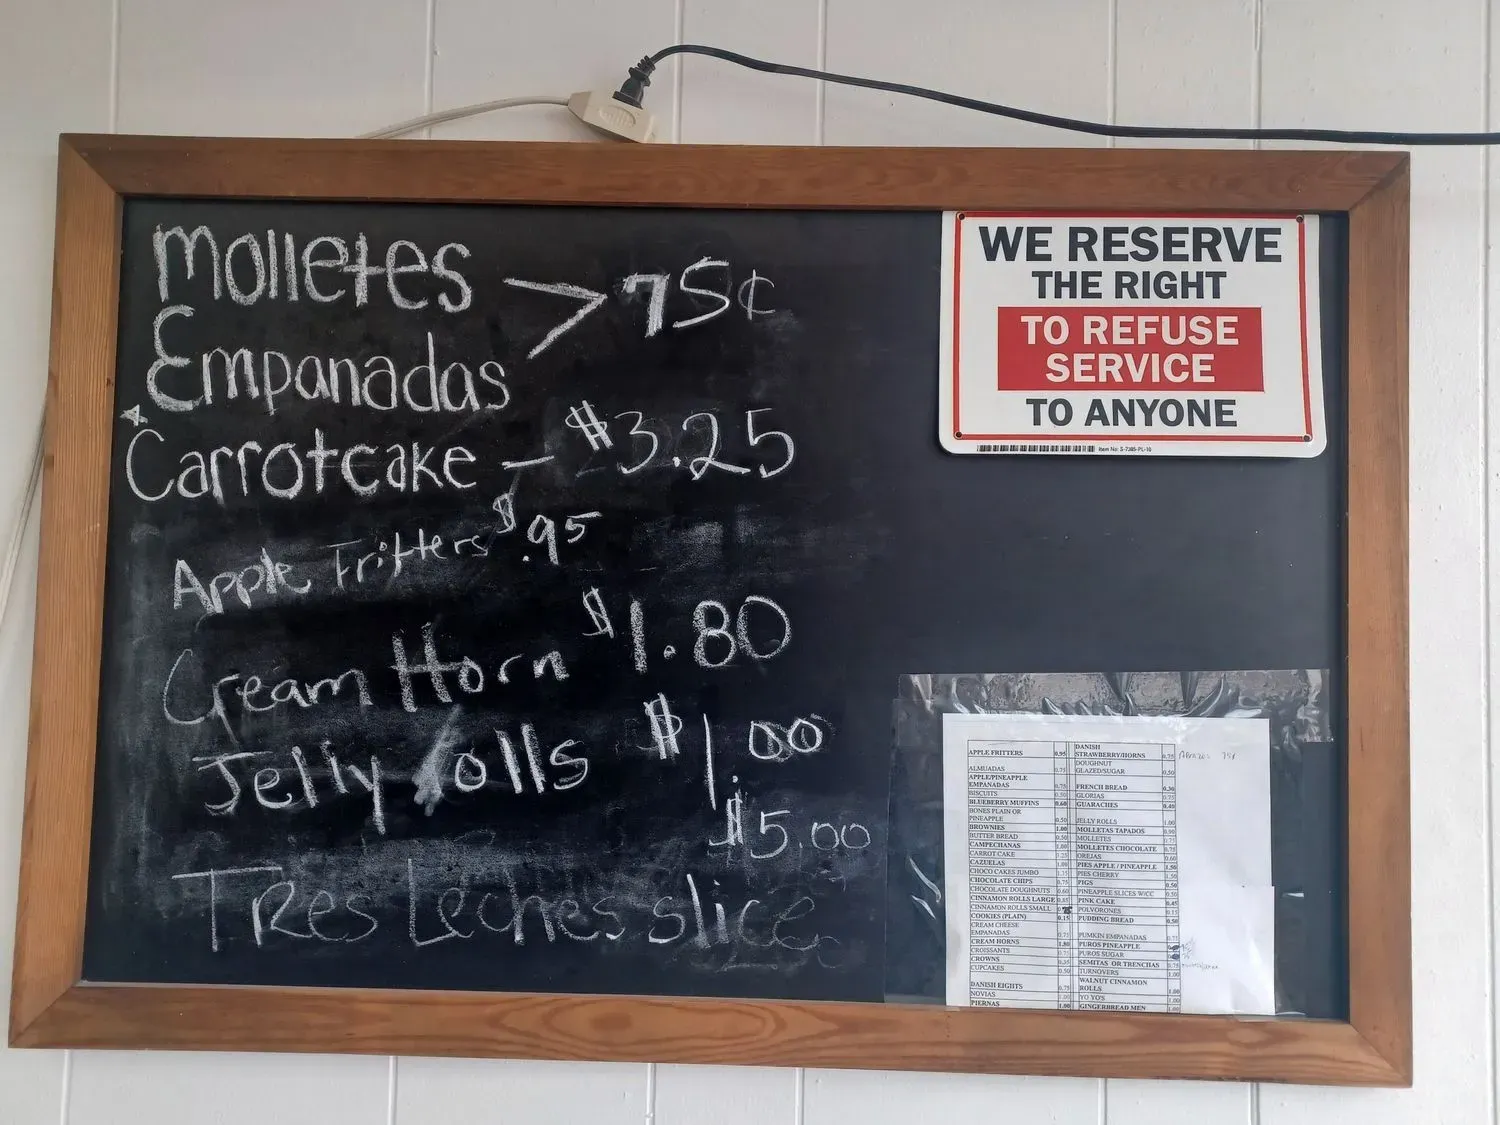 Molletes
> 75¢
Empanadas
Carrotcake – $3.25
Apple Fritters $.95
Cream Horn $1.80
Jelly rolls $1.00
Tres Leches slice $5.00
WE RESERVE
THE RIGHT
TO REFUSE
SERVICE
TO ANYONE
Item No: S-7385-PL-10
APPLE FRITTERS 0.95
ALMUADAS 0.75
APPLE/PINEAPPLE
EMPANADAS 0.75
BISCUITS 0.50
BLUEBERRY MUFFINS 0.60
BONES PLAIN OR
PINEAPPLE 0.50
BROWNIES 1.00
BUTTER BREAD 0.50
CAMPECHANAS 1.00
CARROT CAKE
CAZUELAS 1.00
CHOCO CAKES JUMBO
CHOCOLATE CHIPS 0.75
CHOCOLATE DOUGHNUTS 0.60
CINNAMON ROLLS LARGE
CINNAMON ROLLS SMALL
COOKIES (PLAIN) 0.15
CREAM CHEESE
EMPANADAS 0.75
CREAM HORNS 1.80
CROISSANTS 0.75
CROWNS
CUPCAKES 0.50
DANISH EIGHTS 0.75
NOVIAS 1.00
PIERNAS 1.00
DANISH
STRAWBERRY/HORNS 0.75
75¢
DOUGHNUT
GLAZED/SUGAR 0.50
FRENCH BREAD 0.30
GLORIAS 0.75
GUARACHES
JELLY ROLLS 1.00
MOLLETAS TAPADOS 0.90
MOLLETES 0.75
MOLLETES CHOCOLATE 0.75
OREJAS 0.60
PIES APPLE / PINEAPPLE 1.50
PIES CHERRY 1.50
PIGS 0.50
PINEAPPLE SLICES W/CC 0.50
PINK CAKE
POLVORONES 0.15
PUDDING BREAD 0.50
PUMKIN EMPANADAS 0.75
PUROS PINEAPPLE
PUROS SUGAR
SEMITAS OR TRENCHAS 0.75
TURNOVERS 1.00
WALNUT CINNAMON
ROLLS 1.00
YO YO'S 1.00
GINGERBREAD MEN 1.00